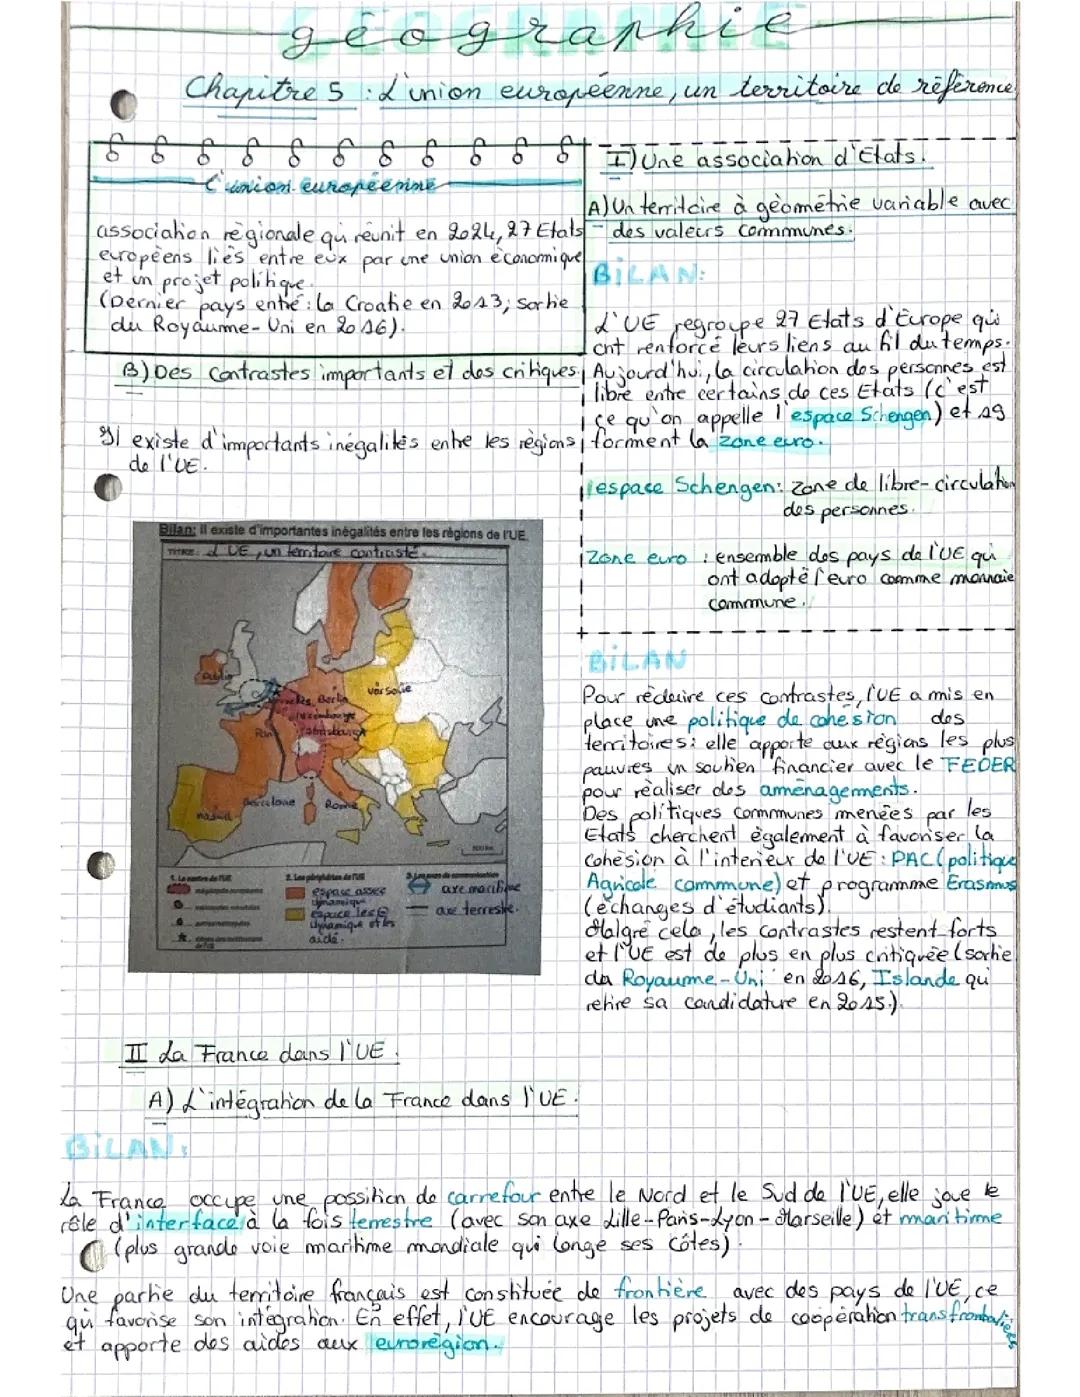 géographie
Chapitre 5 : L'union européenne, un territoire de référence
L'union européenne
association régionale qui réunit en 2024, 27 Etats
européens liés entre eux par une union économique
et un projet politique.
(Dernier pays entré : la Croatie en 2013; sortie
du Royaume-Uni en 2016).
I) Une association d'Etats.
A) Un territoire à géométrie variable avec
des valeurs communes.
BILAN:
L'UE regroupe 27 Etats d'Europe qui
ont renforcé leurs liens au fil du temps.
Aujourd'hui, la circulation des personnes est
libre entre certains de ces Etats (c'est
ce qu'on appelle l'espace Schengen) et 19
forment la zone euro.
espace Schengen: zone de libre-circulation
des personnes.
Zone euro : ensemble des pays de l'UE qui
ont adopté l'euro comme monnaie
commune.
B) Des contrastes importants et des critiques
Il existe d'importants inégalités entre les régions
de l'UE.
Bilan: Il existe d'importantes inégalités entre les régions de l'UE.
TITRE: L'UE, un territoire contrasté.
Dublin
Berlin
Varsovie
Luxembourg
Strasbourg
Paris
Barcelone
Rome
Madrid
1. Le centre de l'UE
2. Les périphéries de l'UE
espace assez
dynamique
espace less
dynamique et les
aidé.
3. Les axes de communication
axe maritime
axe terrestre.
BILAN
Pour réduire ces contrastes, l'UE a mis en
place une politique de cohésion des
territoires: elle apporte aux régions les plus
pauvres un soutien financier avec le FEDER
pour réaliser des aménagements.
Des politiques communes menées par les
Etats cherchent également à favoriser la
cohésion à l'interieur de l'UE : PAC (politique
Agricole commune) et programme Erasmus
(échanges d'étudiants).
Malgré cela, les contrastes restent forts
et l'UE est de plus en plus critiquée (sortie
du Royaume-Uni en 2016, Islande qui
retire sa candidature en 2015).
II La France dans l'UE.
A) L'intégration de la France dans l'UE.
BILAN:
La France occupe une possition de carrefour entre le Nord et le Sud de l'UE, elle joue le
rôle d'interface à la fois terrestre (avec son axe Lille-Paris-Lyon-Marseille) et maritime
(plus grande voie maritime mondiale qui longe ses côtes).
Une partie du territoire français est constituée de frontière avec des pays de l'UE, ce
qui favorise son intégration. En effet, l'UE encourage les projets de coopération transfrontaliers
et apporte des aides aux eurorégion.